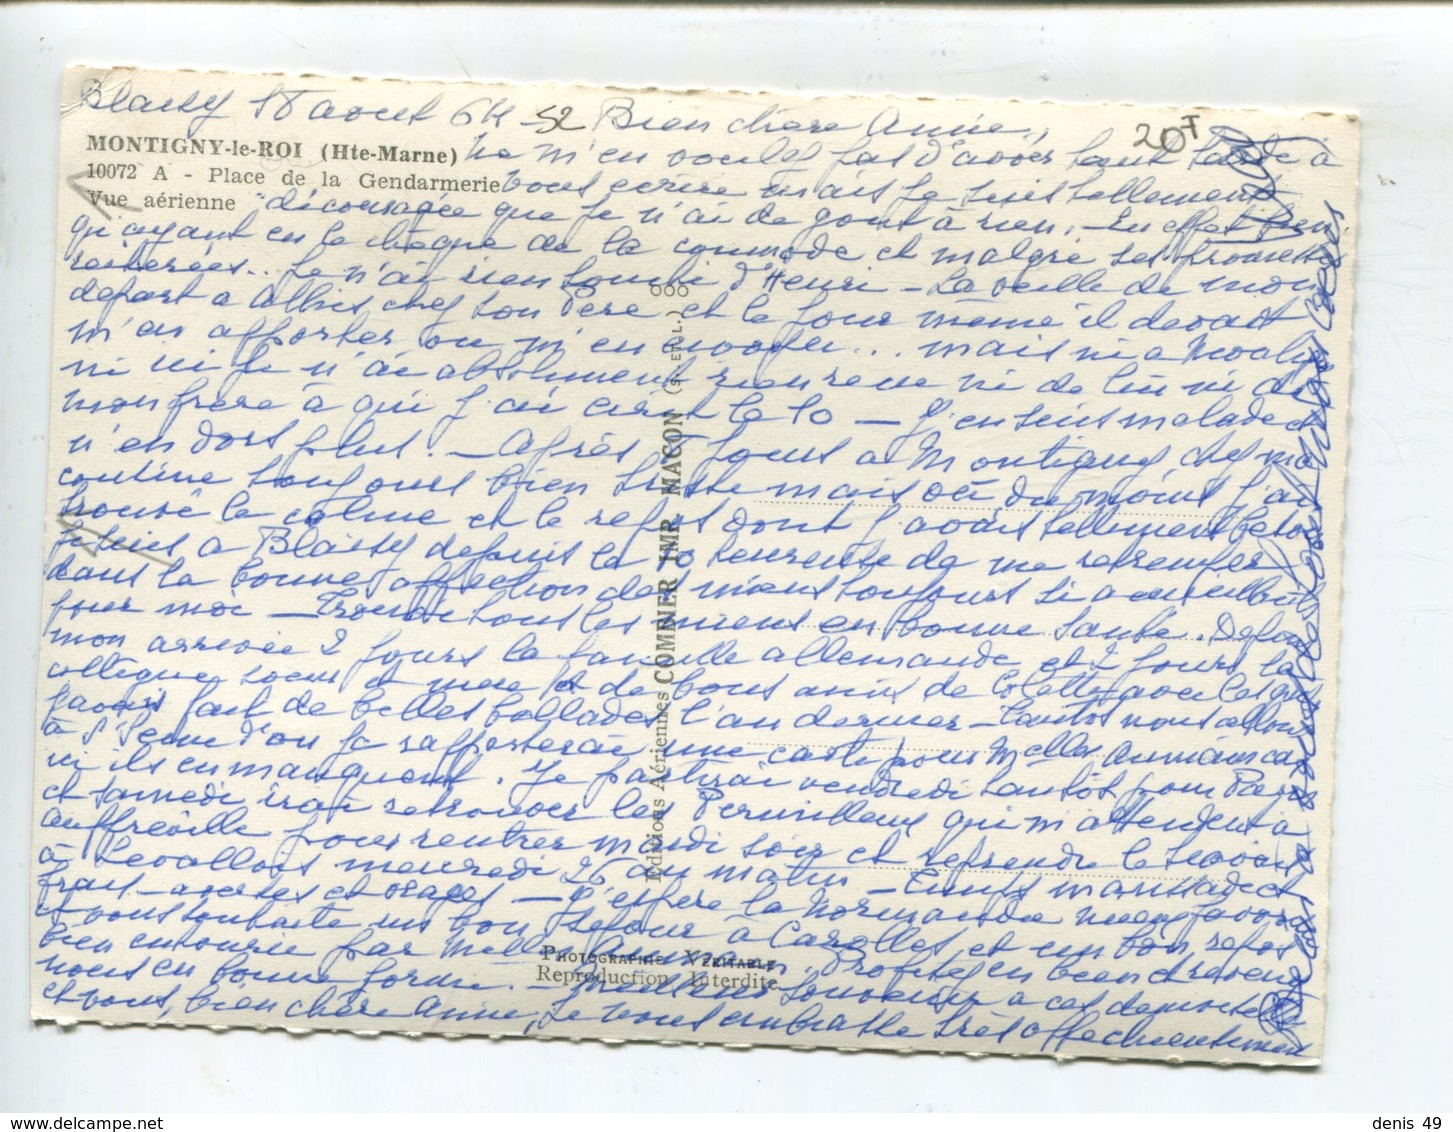 Blaisy 18 aout 64 52 Bien chère Annie,
20F
MONTIGNY-le-ROI (Hte-Marne)
10072 A - Place de la Gendarmerie
Vue aérienne
Ne m'en voulez pas d'avoir tant tardé à
vous écrire mais je suis tellement
découragée que je n'ai de gout à rien. En effet bien
qu'ayant eu le chèque de la commode et malgré ses promesses
réitérées.. Je n'ai rien d'Henri - La veille de mon
départ a chez son Père et le jour même il devait
m'en apporter ou m'en envoyer... mais ni a
ni ici je n'ai absolument rien reçu ni de lui ni de
mon frère à qui j'ai écrit le 10 - J'en suis malade et
n'en dors plus. - Après jours a Montigny chez ma
cousine toujours bien triste mais où du moins j'ai
trouvé le calme et le repos dont j'avais tellement besoin
Je suis a Blaisy depuis le 10 heureuse de me retremper
dans la bonne affection des miens toujours si accueillants
pour moi - Trouvé tous les miens en bonne santé. Depuis
mon arrivée 2 jours la famille allemande et 2 jours la
collègue soeur et mère et de bons amis de Colette avec lesquels
j'avais fait de belles ballades l'an dernier - Tantôt nous allons
à St Seine d'où je rapporterai une carte pour Melles car
ici ils en manquent. Je partirai vendredi tantôt pour Paris
et samedi irai retrouver les qui m'attendent à
pour rentrer mardi soir et reprendre le travail
à Levallois mercredi 26 au matin - Temps maussade et
frais - averses et orages - J'espère la Normandie
et vous souhaite un bon séjour à Carolles et un bon repos
bien entourée par Melles. Profitez en bien et revenez
nous en bonne forme. - Meilleur souvenir a ces demoiselles
et vous, bien chère Annie, je vous embrasse très affectueusement
Editions Aériennes COMBIER IMP. MACON (S. ET L.) ooo
PHOTOGRAPHIE VÉRITABLE
Reproduction Interdite
denis 49